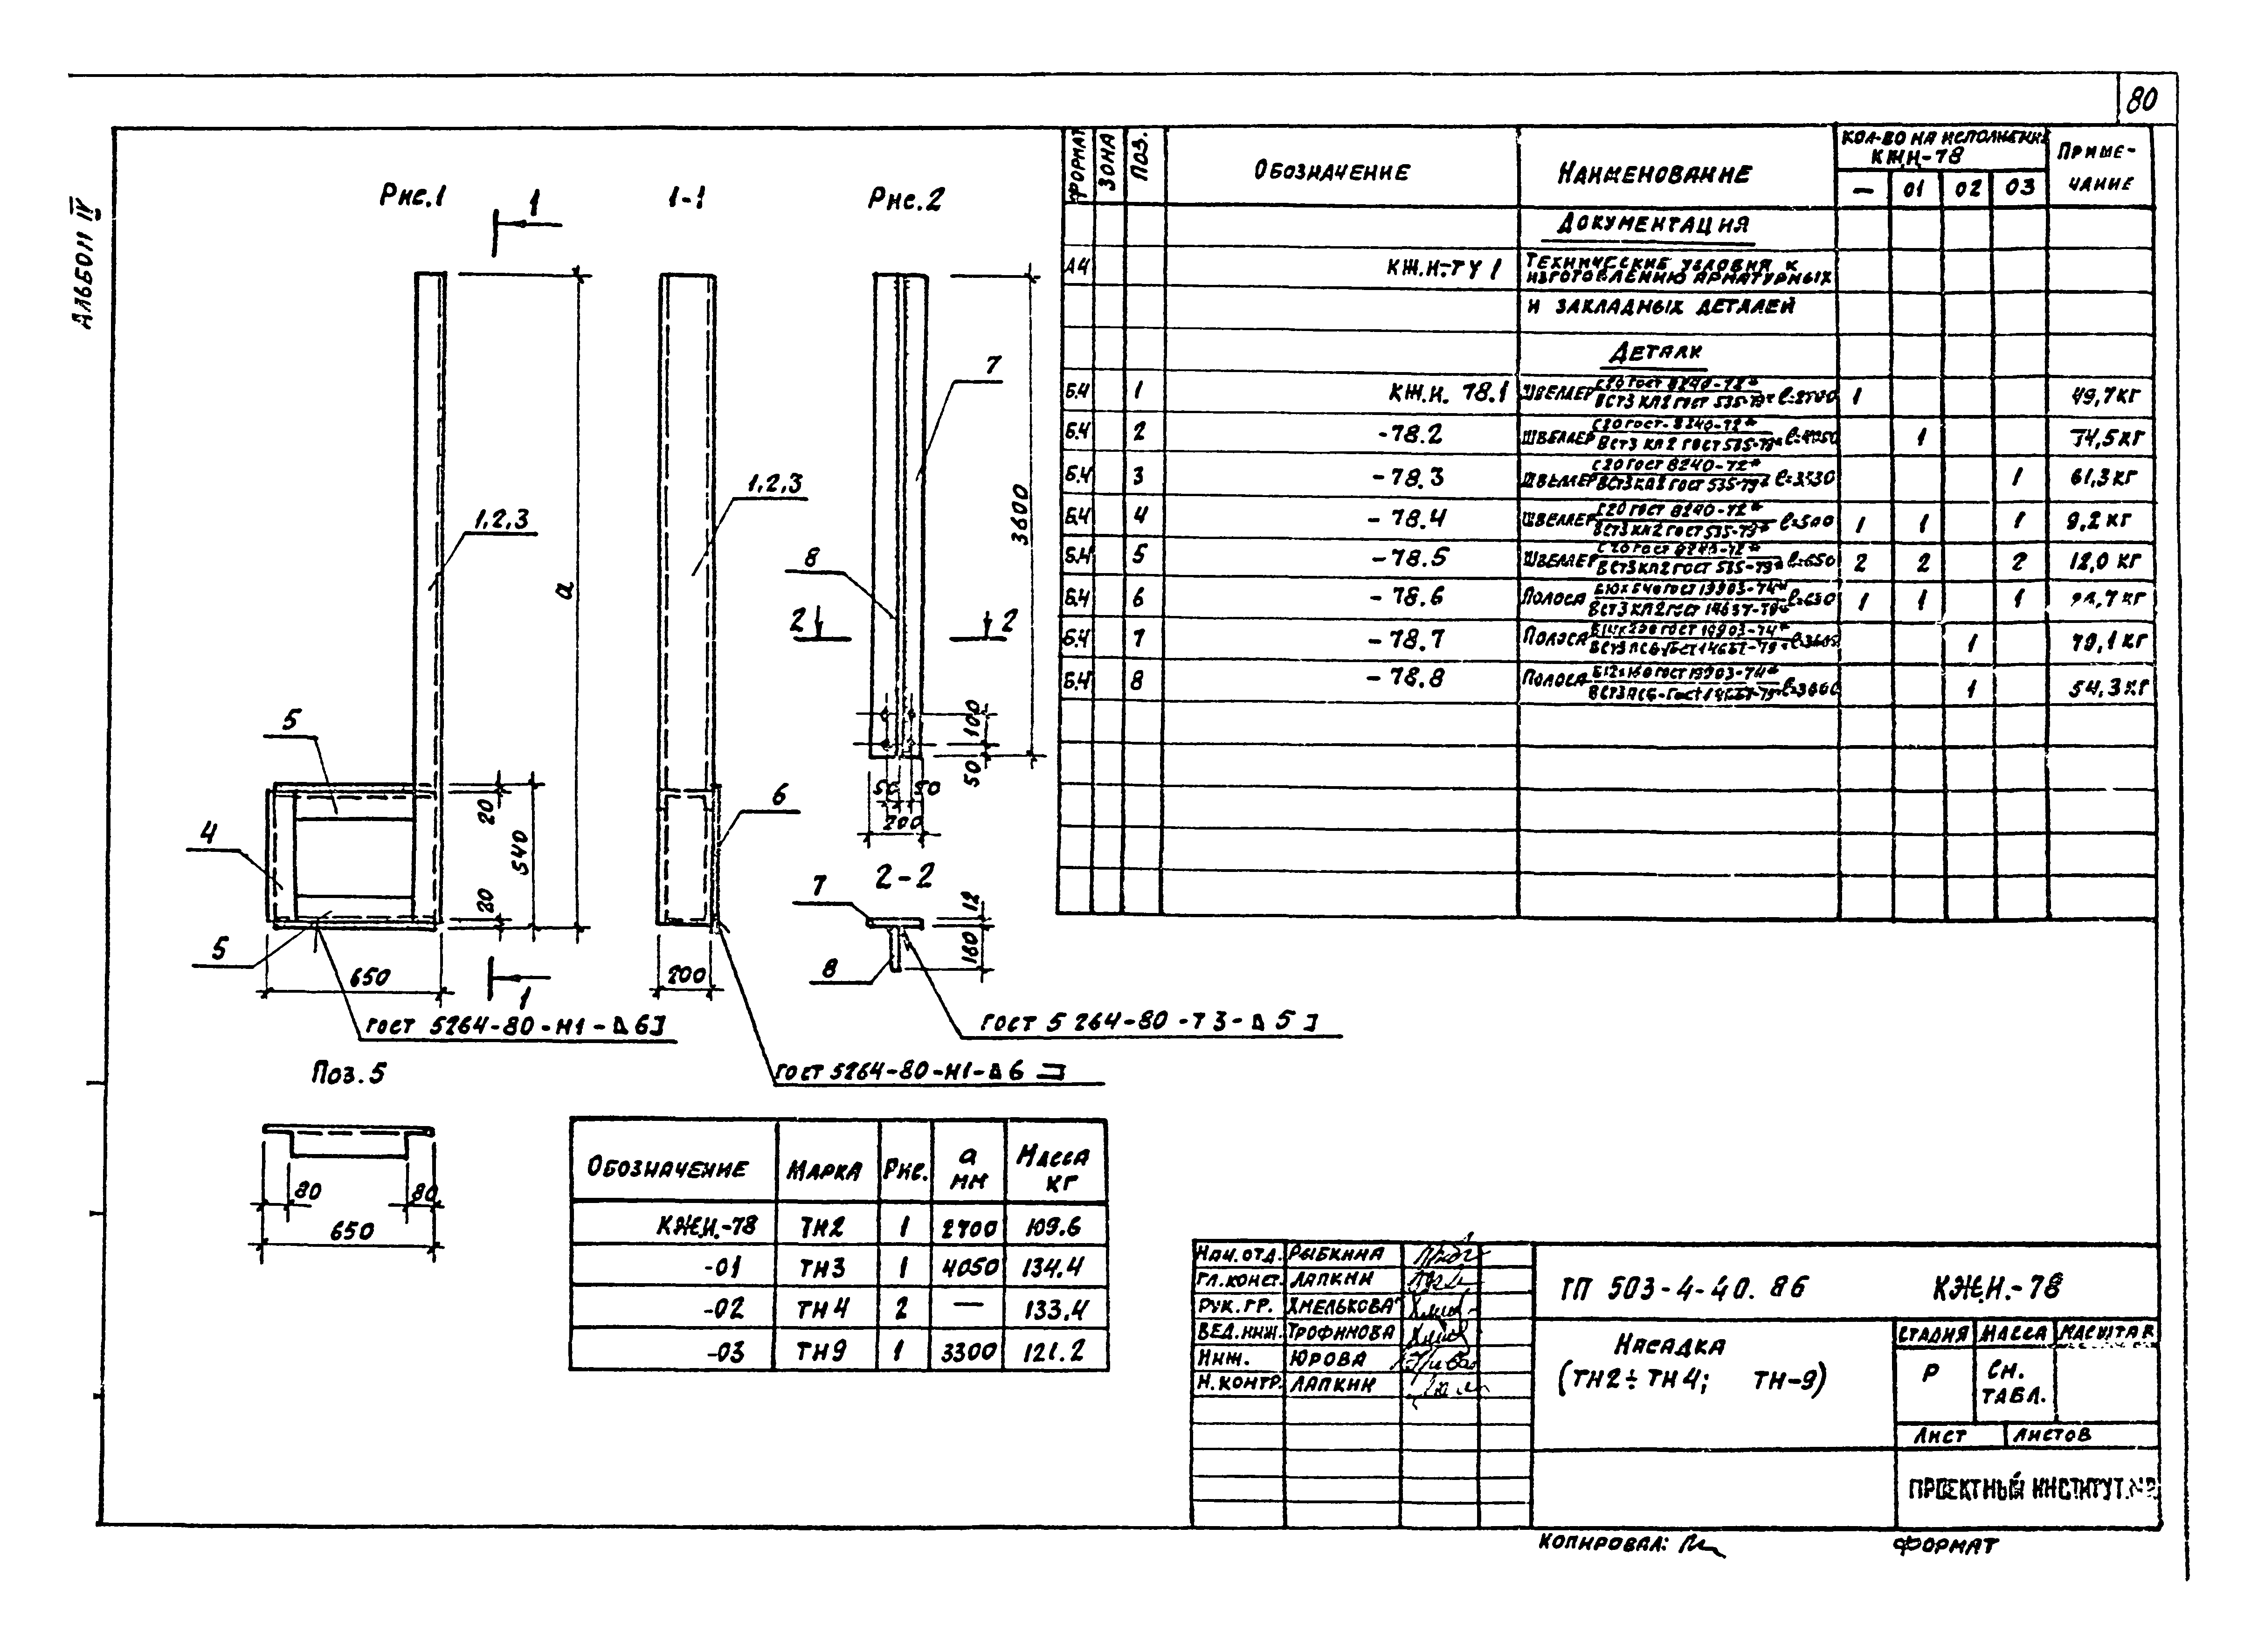 80
АЛЬБОМ IV
Рис.1
1
1-1
Рис.2
1,2,3
1,2,3
7
8
а
3600
2 2
100
50
50 50
200
5
4
5
20
540
20
650
1
6
200
2-2
7
8
12
160
ГОСТ 5264-80-Н1-Δ6
ГОСТ 5264-80-Т3-Δ5
ГОСТ 5264-80-Н1-Δ6
Поз.5
80 80
650
ФОРМАТ ЗОНА ПОЗ. ОБОЗНАЧЕНИЕ НАИМЕНОВАНИЕ КОЛ-ВО НА ИСПОЛНЕНИ КЖ.Н-78 ПРИМЕ-ЧАНИЕ
— 01 02 03
ДОКУМЕНТАЦИЯ
А4 КЖ.И-ТУ1 ТЕХНИЧЕСКИЕ УСЛОВИЯ К
ИЗГОТОВЛЕНИЮ АРМАТУРНЫХ
И ЗАКЛАДНЫХ ДЕТАЛЕЙ
ДЕТАЛИ
Б.4 1 КЖ.И. 78.1 ШВЕЛЛЕР С20 ГОСТ 8240-72* ВСТ3 КП2 ГОСТ 535-79* ℓ=2700 1 49,7 КГ
Б.4 2 -78.2 ШВЕЛЛЕР С20 ГОСТ-8240-72* ВСТ3 КП2 ГОСТ 535-79* ℓ=4050 1 74,5 КГ
Б.4 3 -78.3 ШВЕЛЛЕР С20 ГОСТ 8240-72* ВСТ3 КП2 ГОСТ 535-79* 1 61,3 КГ
Б.4 4 -78.4 ШВЕЛЛЕР С20 ГОСТ 8240-72* ВСТ3 КП2 ГОСТ 535-79* ℓ=500 1 1 1 9,2 КГ
Б.4 5 -78.5 ШВЕЛЛЕР С20 ГОСТ 8240-72* ВСТ3 КП2 ГОСТ 535-79* ℓ=650 2 2 2 12,0 КГ
Б.4 6 -78.6 ПОЛОСА Б10х540 ГОСТ 19903-74* ВСТ3 КП2 ГОСТ 14637-79* ℓ=650 1 1 1 КГ
Б.4 7 -78.7 ПОЛОСА ГОСТ 19903-74* ВСТ3ПС6-ГОСТ 14637-79* 1 79,1 КГ
Б.4 8 -78.8 ПОЛОСА Б12х160 ГОСТ 19903-74* ВСТ3ПС6-ГОСТ 14637-79* ℓ=3600 1 54,3 КГ
ОБОЗНАЧЕНИЕ МАРКА РИС. а ММ МАССА КГ
КЖ.И.-78 ТН2 1 2700 109.6
-01 ТН3 1 4050 134.4
-02 ТН4 2 — 133.4
-03 ТН9 1 3300 121.2
НАЧ.ОТД. РЫБКИНА
ГЛ.КОНСТ. ЛАПКИН
РУК.ГР. ХМЕЛЬКОВА
ВЕД.ИНЖ. ТРОФИМОВА
ИНЖ. ЮРОВА
Н.КОНТР. ЛАПКИН
ТП 503-4-40.86 КЖ.И.-78
НАСАДКА
(ТН2÷ТН4; ТН-9)
СТАДИЯ МАССА МАСШТАБ
Р СМ. ТАБЛ.
ЛИСТ ЛИСТОВ
ПРОЕКТНЫЙ ИНСТИТУТ
КОПИРОВАЛ: ФОРМАТ